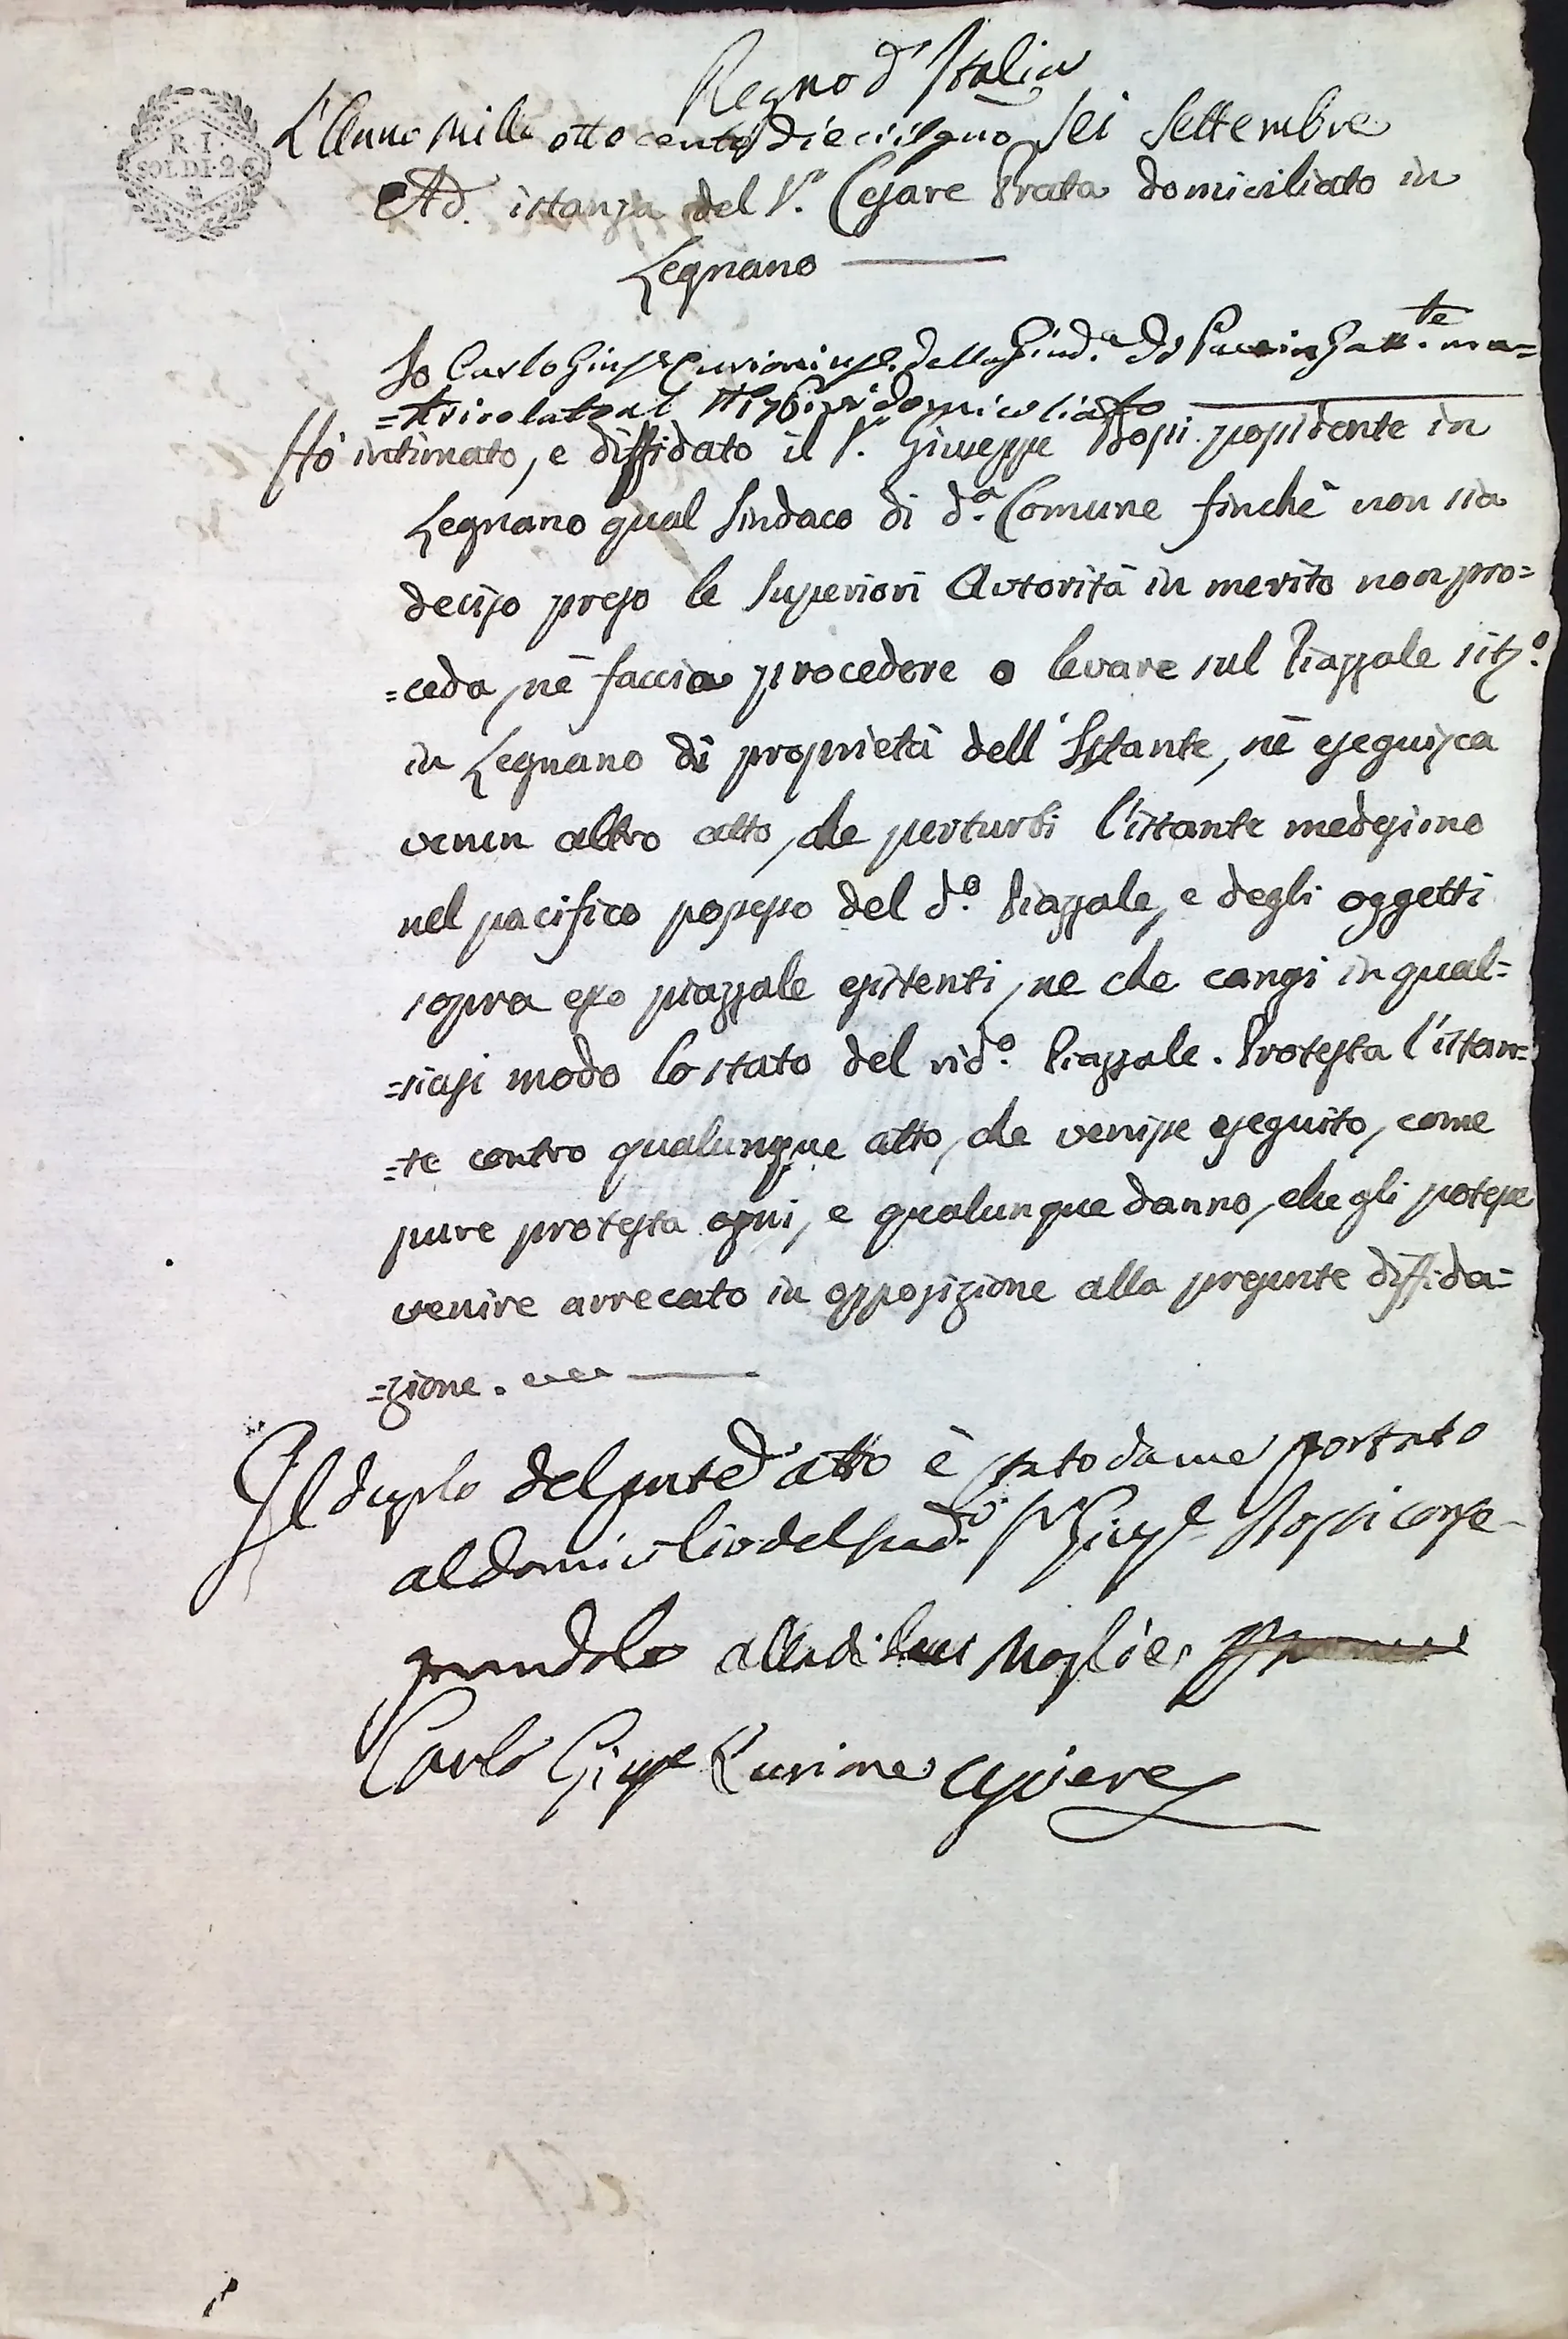 Regno d'Italia
R. I.
SOLDI. 26
L'Anno Mille ottocento dieci Sei Settembre
Ad istanza del S.r Cesare Prata domiciliato in
Legnano
Io Carlo Gius.e Curioni usc.e della Giud.a di Pace in Gall.te ma=
=tricolato al N. 176 ivi domiciliato
Hò intimato, e diffidato il S.r Giuseppe Rossi possidente in
Legnano qual Sindaco di d.a Comune finchè non sia
deciso presso le Superiori Autorità in merito non pro=
=ceda, nè faccia procedere o levare sul Piazzale sit.o
in Legnano di proprietà dell'Istante, nè eseguisca
verun altro atto, che perturbi l'istante medesimo
nel pacifico possesso del d.o Piazzale, e degli oggetti
sopra esso piazzale esistenti, ne che cangi in qual=
=siasi modo lo stato del sud.o Piazzale. Protesta l'istan=
=te contro qualunque atto, che venisse eseguito, come
pure protesta ogni, e qualunque danno, che gli potesse
venire arrecato in opposizione alla presente diffida=
=zione.
Il duplo del pnte atto è stato da me portato
al domicilio del sud.o S.r Gius.e Rossi conse
gnandolo alla di lui Moglie
Carlo Gius.e Curione Usciere